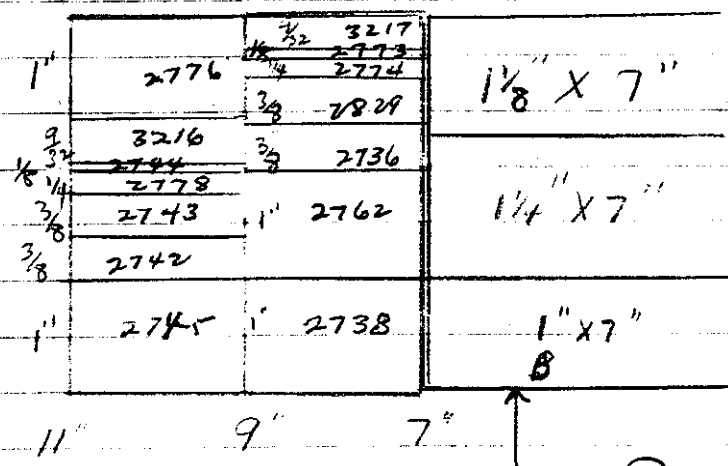 1" 2776
9/32 3216
1/8 2744
1/4 2778
3/8 2743
3/8 2742
1" 2745
3217
1/8 2773
1/4 2774
3/8 2829
3/8 2736
1" 2762
1" 2738
1 1/8" X 7"
1 1/4" X 7"
1" X 7"
B
11" 9" 7"